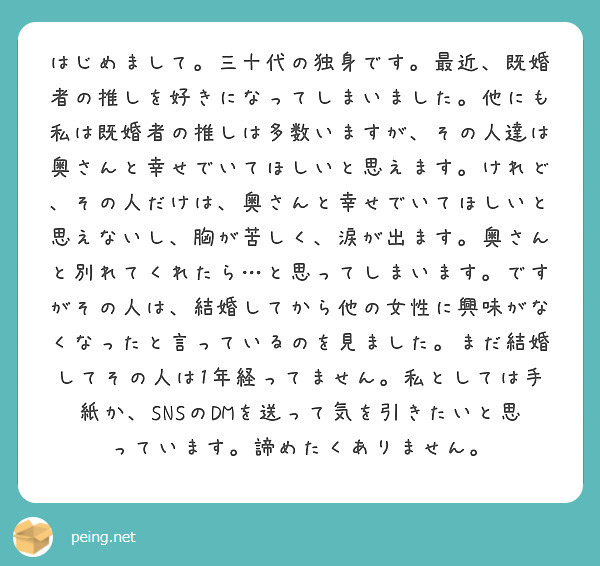 はじめまして。三十代の独身です。最近、既婚
者の推しを好きになってしまいました。他にも
私は既婚者の推しは多数いますが、その人達は
奥さんと幸せでいてほしいと思えます。けれど
、その人だけは、奥さんと幸せでいてほしいと
思えないし、胸が苦しく、涙が出ます。奥さん
と別れてくれたら…と思ってしまいます。です
がその人は、結婚してから他の女性に興味がな
くなったと言っているのを見ました。まだ結婚
してその人は1年経ってません。私としては手
紙か、SNSのDMを送って気を引きたいと思
っています。諦めたくありません。
peing.net